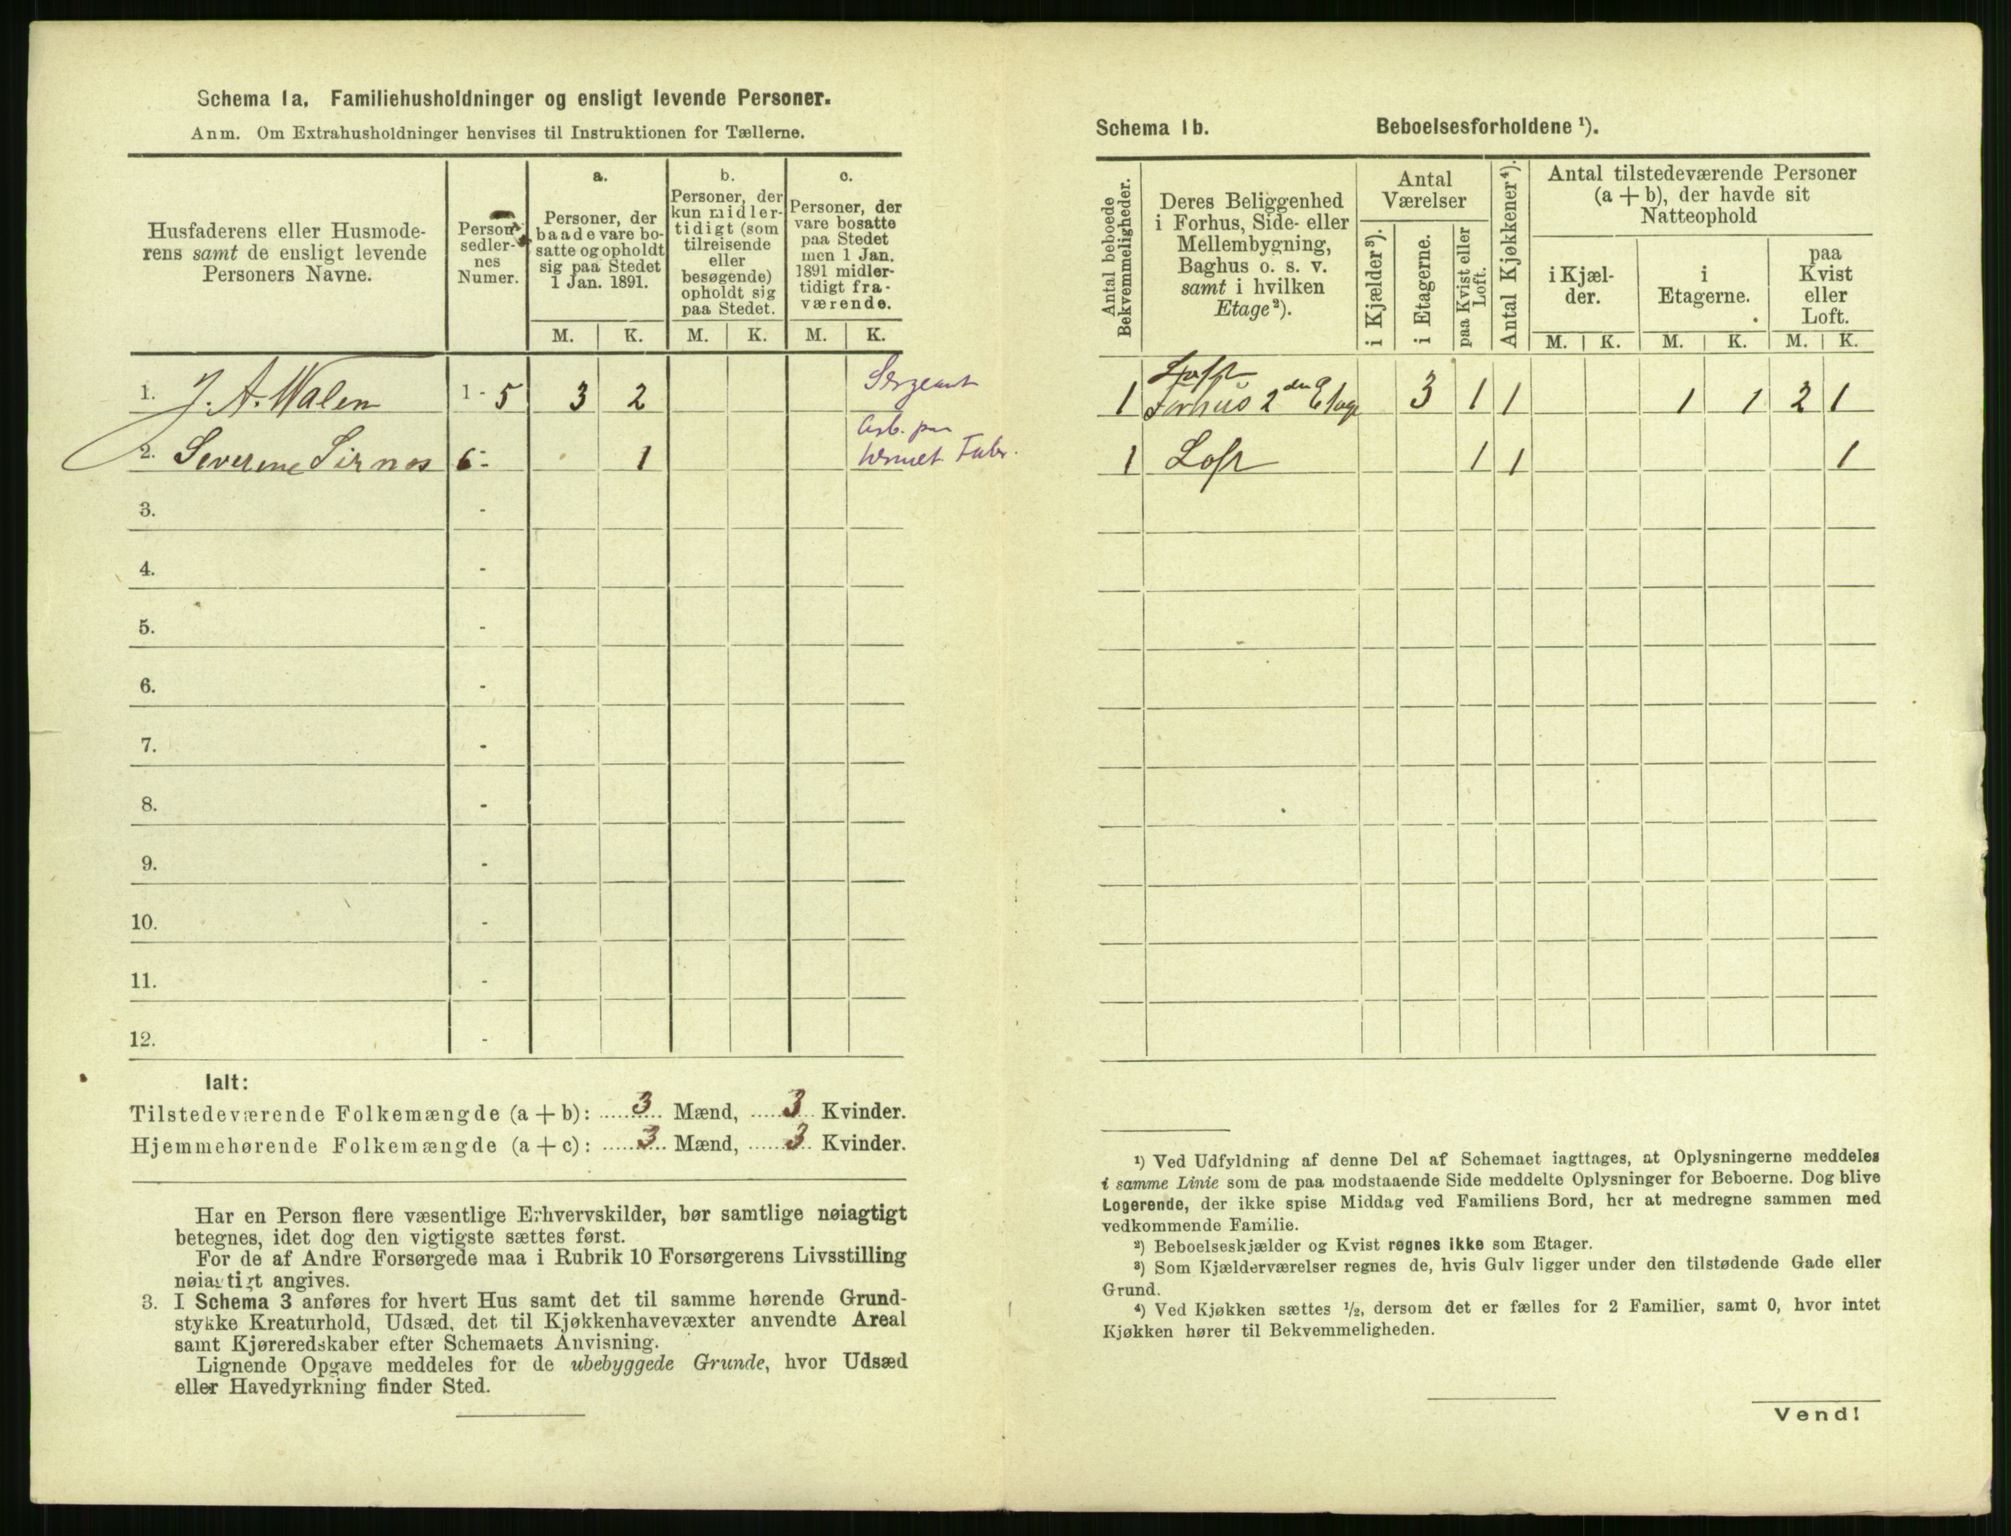 Schema 1a. Familiehusholdninger og ensligt levende Personer.
Anm. Om Extrahusholdninger henvises til Instruktionen for Tællerne.
Husfaderens eller Husmode-
rens samt de ensligt levende
Personers Navne.
Person-
sedler-
nes
Numer.
a.
Personer, der
baade vare bo-
satte og opholdt
sig paa Stedet
1 Jan. 1891.
b.
Personer, der
kun midler-
tidigt (som
tilreisende
eller
besøgende)
opholdt sig
paa Stedet.
c.
Personer, der
vare bosatte
paa Stedet
men 1 Jan.
1891 midler-
tidigt fra-
værende.
M. K. M. K. M. K.
1. J. A. Walen 1 - 5 3 2 Sergeant
2. Severine Sirnes 6 - 1 Arb. paa
hermet. Fabr.
3. -
4. -
5. -
6. -
7. -
8. -
9. -
10. -
11. -
12. -
Ialt:
Tilstedeværende Folkemængde (a + b): 3 Mænd, 3 Kvinder.
Hjemmehørende Folkemængde (a + c): 3 Mænd, 3 Kvinder.
Har en Person flere væsentlige Erhvervskilder, bør samtlige nøiagtigt
betegnes, idet dog den vigtigste sættes først.
For de af Andre Forsørgede maa i Rubrik 10 Forsørgerens Livsstilling
nøiagtigt angives.
3. I Schema 3 anføres for hvert Hus samt det til samme hørende Grund-
stykke Kreaturhold, Udsæd, det til Kjøkkenhavevæxter anvendte Areal
samt Kjøreredskaber efter Schemaets Anvisning.
Lignende Opgave meddeles for de ubebyggede Grunde, hvor Udsæd
eller Havedyrkning finder Sted.
Schema 1b. Beboelsesforholdene ¹).
Antal beboede
Bekvemmeligheder.
Deres Beliggenhed
i Forhus, Side- eller
Mellembygning,
Baghus o. s. v.
samt i hvilken
Etage²).
Antal
Værelser
i Kjælder³).
i Etagerne.
paa Kvist eller
Loft.
Antal Kjøkkener⁴).
Antal tilstedeværende Personer
(a + b), der havde sit
Natteophold
i Kjæl-
der.
i
Etagerne.
paa
Kvist
eller
Loft.
M. K. M. K. M. K.
Loft
1 Forhus 2den Etage 3 1 1 1 1 2 1
1 Loft 1 1 1
¹) Ved Udfyldning af denne Del af Schemaet iagttages, at Oplysningerne meddeles
i samme Linie som de paa modstaaende Side meddelte Oplysninger for Beboerne. Dog blive
Logerende, der ikke spise Middag ved Familiens Bord, her at medregne sammen med
vedkommende Familie.
²) Beboelseskjælder og Kvist regnes ikke som Etager.
³) Som Kjælderværelser regnes de, hvis Gulv ligger under den tilstødende Gade eller
Grund.
⁴) Ved Kjøkken sættes ½, dersom det er fælles for 2 Familier, samt 0, hvor intet
Kjøkken hører til Bekvemmeligheden.
Vend!